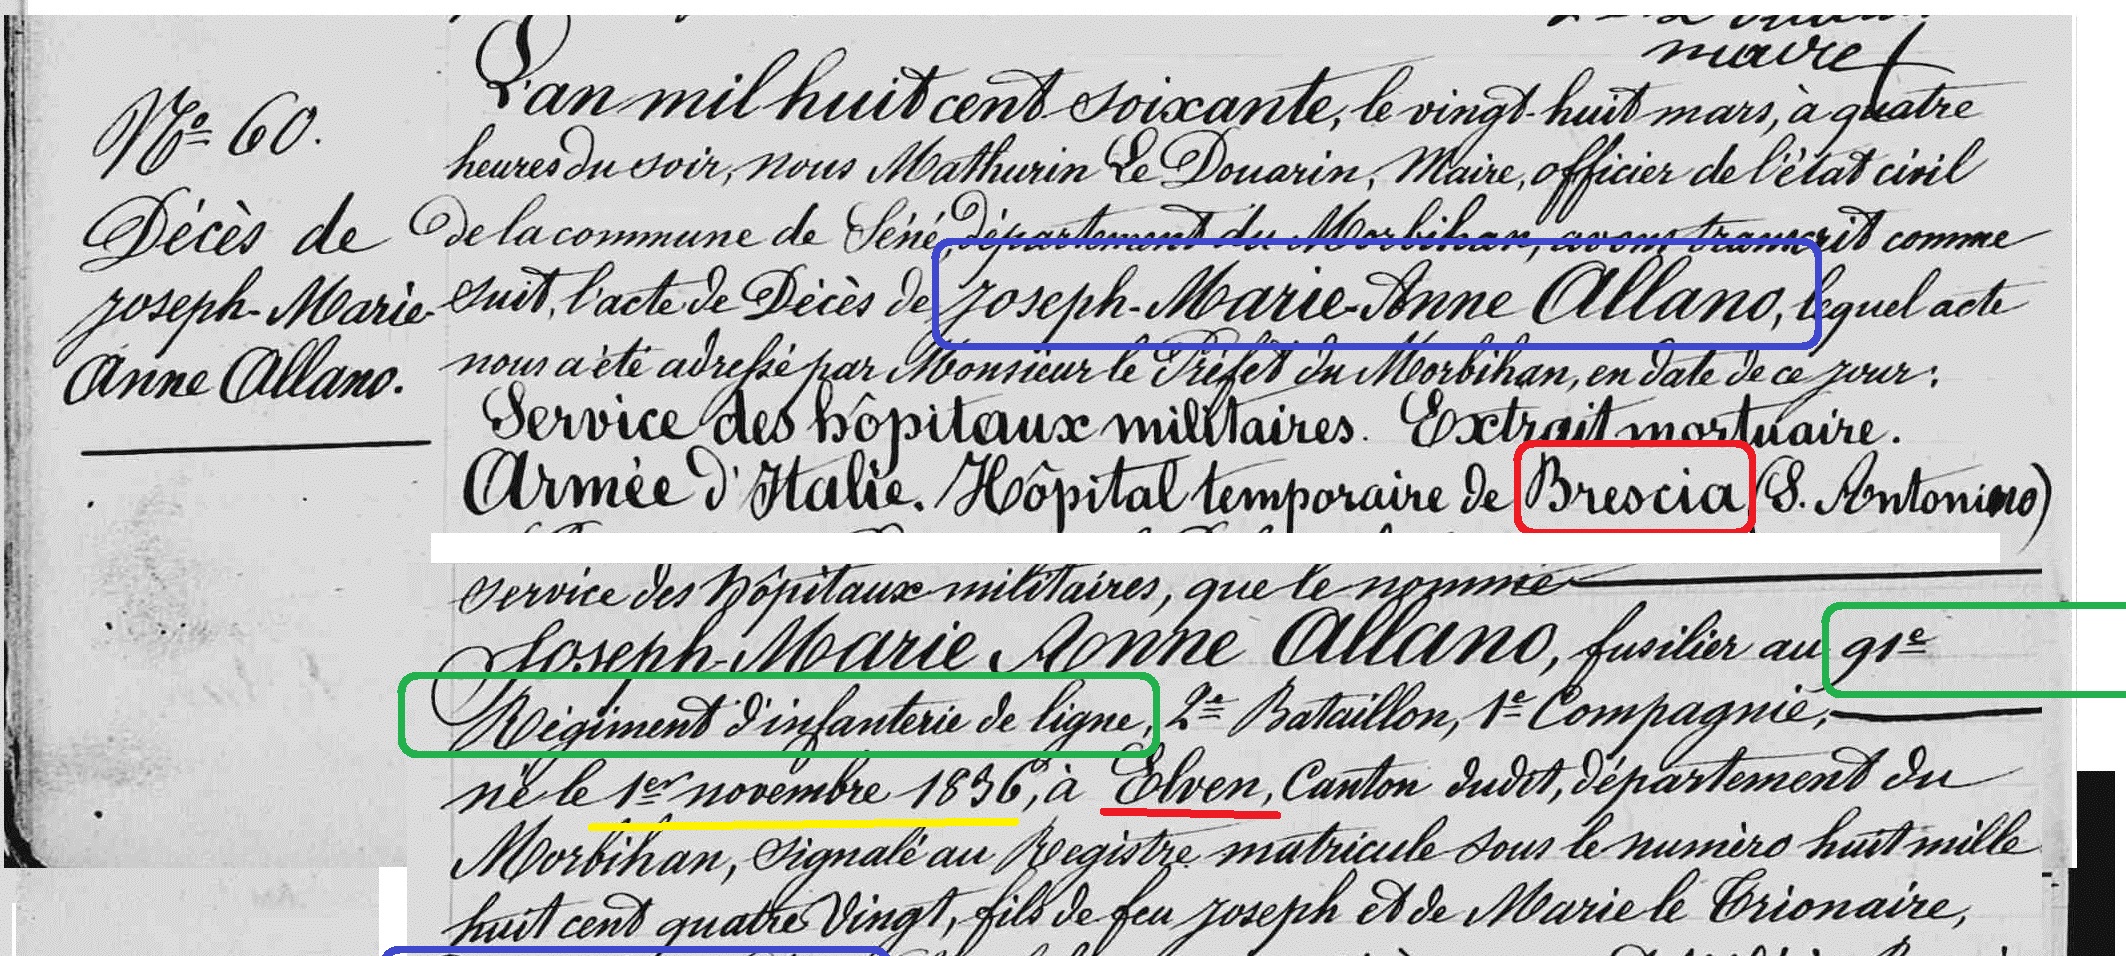 maire
L'an mil huit cent soixante, le vingt-huit mars, à quatre
heures du soir, nous Mathurin Le Douarin, Maire, officier de l'état civil
de la commune de Séné, département du Morbihan, avons transcrit comme
suit, l'acte de Décès de Joseph-Marie-Anne Allano, lequel acte
nous a été adressé par Monsieur le Préfet du Morbihan, en date de ce jour:
Service des hôpitaux militaires. Extrait mortuaire.
Armée d'Italie. Hôpital temporaire de Brescia (S. Antonino)
Nº 60.
Décès de
Joseph-Marie-
Anne Allano.
service des hôpitaux militaires, que le nommé
Joseph-Marie Anne Allano, fusilier au 91e
Régiment d'infanterie de ligne, 2e Bataillon, 1e Compagnie,
né le 1er novembre 1836, à Elven, Canton dudit, département du
Morbihan, signalé au Registre matricule sous le numéro huit mille
huit cent quatre Vingt, fils de feu Joseph et de Marie le Trionaire,